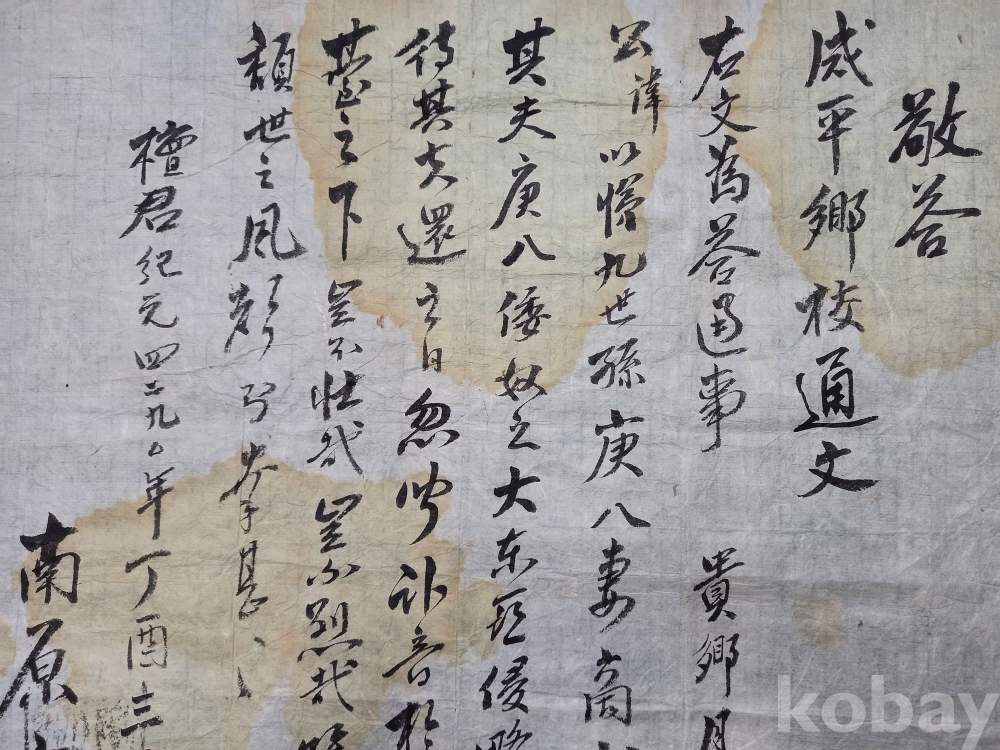 敬答
咸平鄉校通文
右文爲答通事 貴鄉
公諱 以 九世孫庚八妻
其夫庚八倭奴之大東亞侵略
待其夫還之日忽 訃音
臺之下豈不壯哉豈不烈哉
頹世之風
檀君紀元四二九〇年丁酉三
南原
kobay